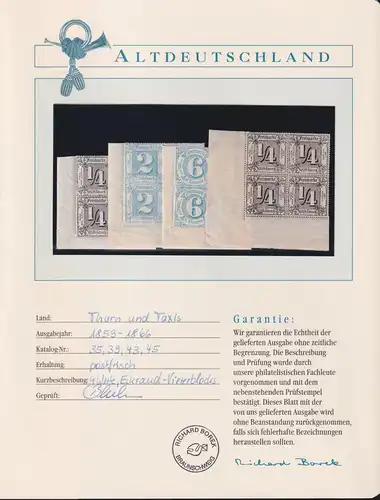 ALTDEUTSCHLAND
1/4
1/4
2
2
6
6
1/4 1/4
1/4 1/4
Land: Thurn und Taxis
Ausgabejahr: 1853-1866
Katalog-Nr.: 35, 39, 43, 45
Erhaltung: postfrisch
Kurzbeschreibung: Eckrand-Viererblocks
Geprüft:
RICHARD BOREK
BRAUNSCHWEIG
Garantie:
Wir garantieren die Echtheit der
gelieferten Ausgabe ohne zeitliche
Begrenzung. Die Beschreibung
und Prüfung wurde durch
unsere philatelistischen Fachleute
vorgenommen und mit dem
nebenstehenden Prüfstempel
bestätigt. Dieses Blatt mit der
von uns gelieferten Ausgabe wird
ohne Beanstandung zurückgenommen,
falls sich fehlerhafte Bezeichnungen
herausstellen sollten.
Richard Borek